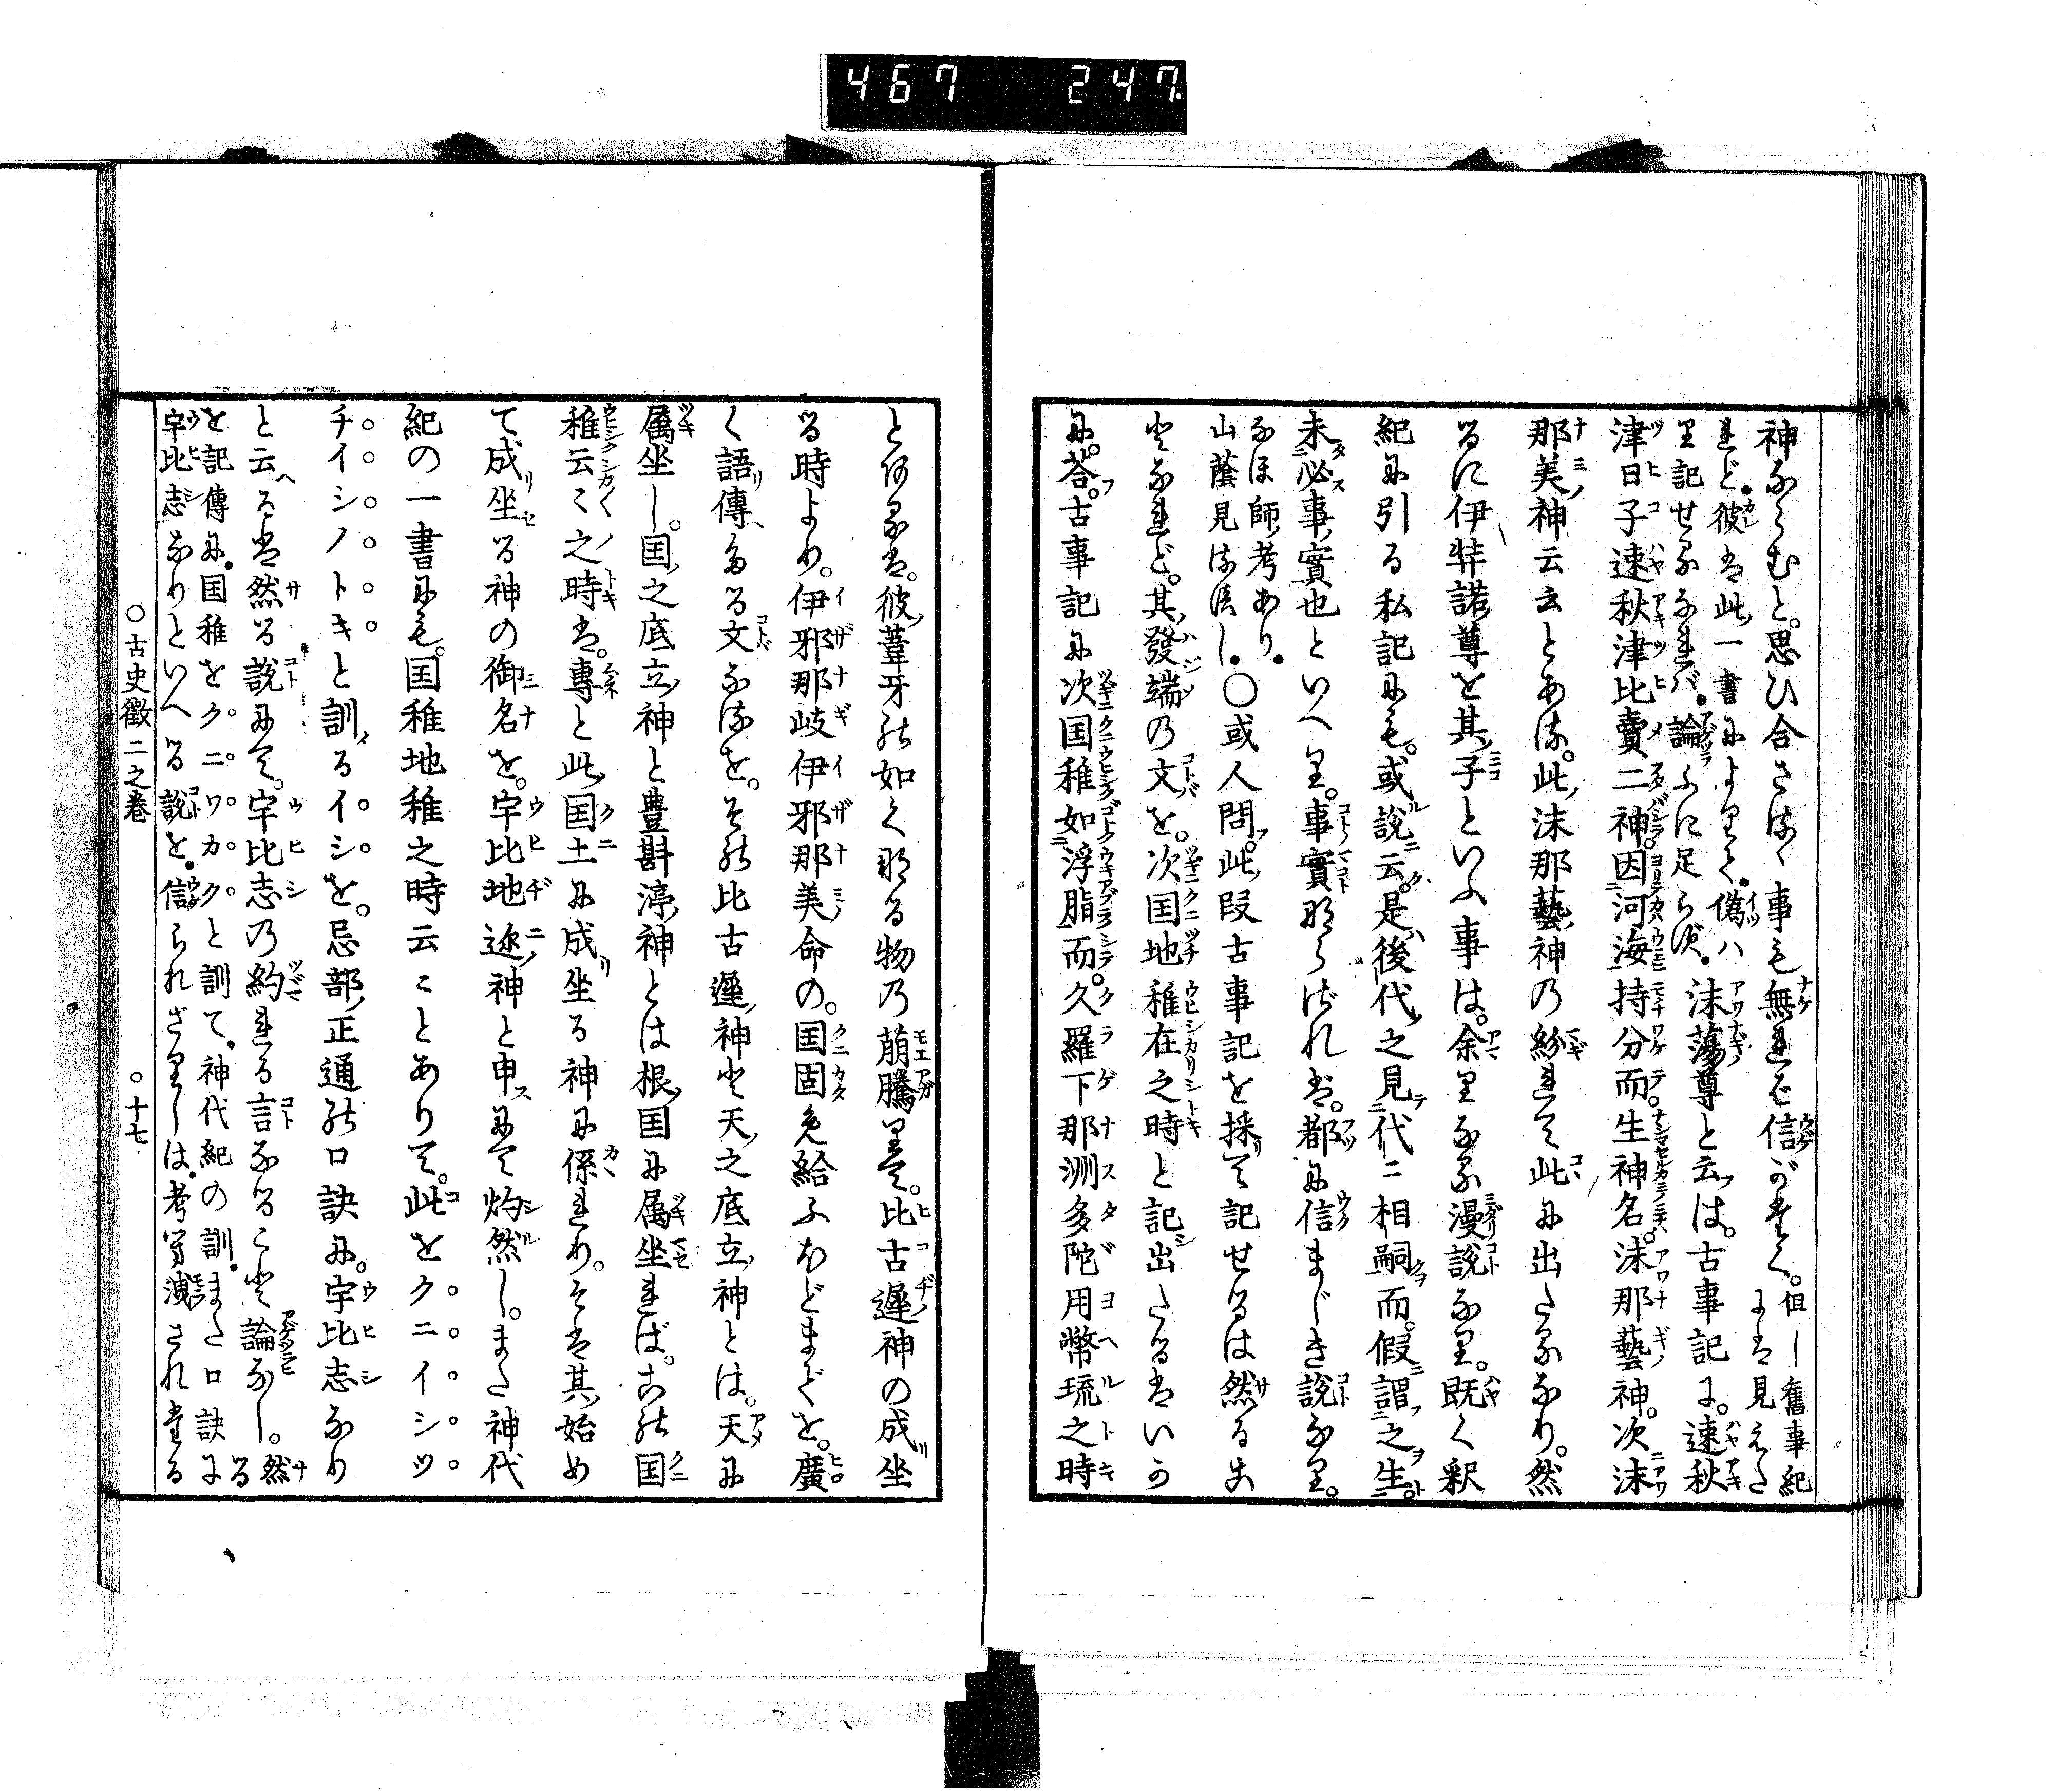 467 247.
神ならむと。思ひ合さるゝ事も無れば信がたく。但し舊事紀
には見えた
れど。彼は此一書によりて。偽ハ
り記せるなれバ。論ふに足らず。沫蕩尊と云は。古事記に。速秋
津日子速秋津比賣二神。因河海持分而。生神名。沫那藝神。次沫
那美神云云とある。此沫那藝神の紛れて此に出たるなり。然
るに伊弉諾尊を其子といふ事は。余りなる漫説なり。既く釈
紀に引る私記にも。或説云。是後代之見代二相嗣而。假謂之生。
未必事實也といへり。事實ならざれば。都に信まじき説なり。
なほ師考あり。
山蔭見るべし。〇或人問。此段古事記を採て記せるは然るこ
となれど。其發端の文を。次国地稚在之時と記出たるはいか
に。荅。古事記に次国稚如浮脂而。久羅下那洲多陀用幣琉之時
とあるは。彼葦牙の如くなる物の萠騰りて。比古遲神の成坐
る時より。伊邪那岐伊邪那美命の。国固め給ふほどまでを。廣
く語傳たる文なるを。その比古遲神と天之底立神とは。天に
属坐し。国之底立神と豊斟渟神とは根国に属坐れば。この国
稚云々之時は。專と此国土に成坐る神に係れり。そは其始め
て成坐る神の御名を。宇比地迩神と申にて灼然し。また神代
紀の一書にも。国稚地稚之時云〻とありて。此をクニイシツ
チイシノトキと訓るイシを。忌部正通の口訣に。宇比志なり
と云へるは然る説にて。宇比志の約れる言なること論なし。然
る
を記傳に。国稚をクニワカクと訓て。神代紀の訓。また口訣に
宇比志なりといへる説を。信られざりしは。考へ洩されたる
〇古史徴二之巻
〇十七